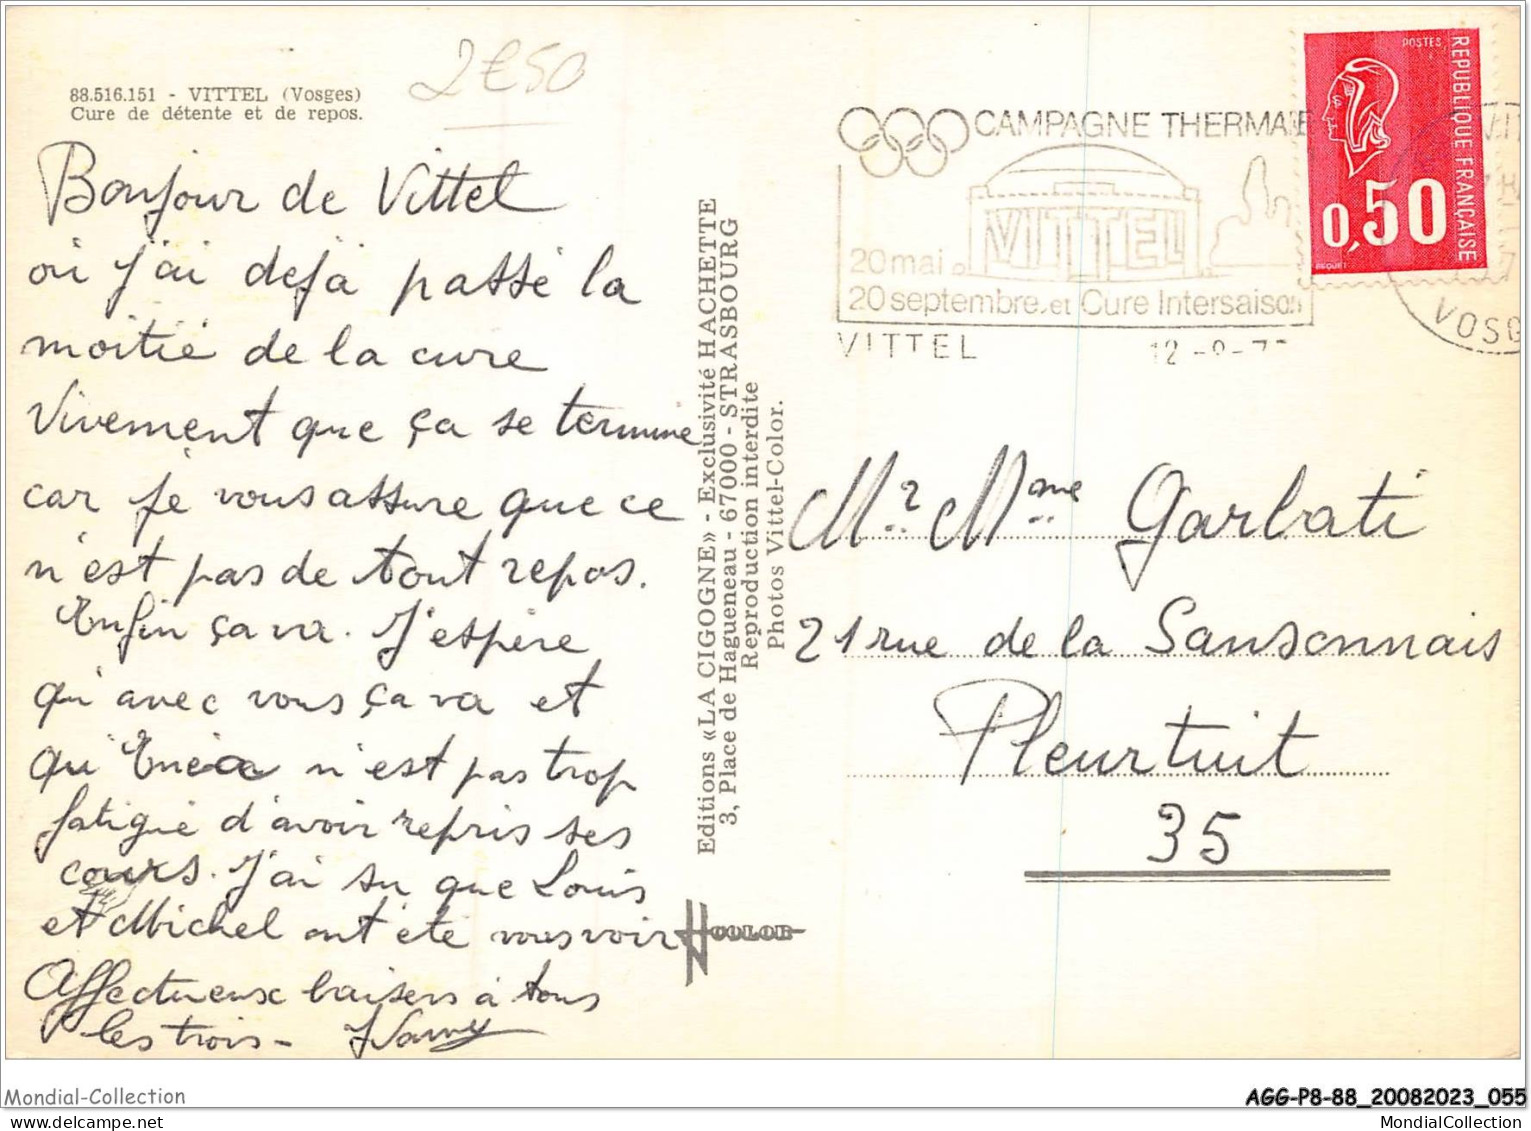 88.516.151 - VITTEL (Vosges)
Cure de détente et de repos.
2€50
Bonjour de Vittel
où j'ai déjà passé la
moitié de la cure
Vivement que ça se termine
car je vous assure que ce
n'est pas de tout repos.
Enfin ça va. J'espère
qu'avec vous ça va et
qu' n'est pas trop
fatigué d'avoir repris ses
cours. J'ai su que Louis
et Michel ont été vous voir
Affectueux baisers à tous
les trois -
Editions «LA CIGOGNE» - Exclusivité HACHETTE
3, Place de Hagueneau - 67000 - STRASBOURG
Reproduction interdite
Photos Vittel-Color.
COLOR
CAMPAGNE THERMALE
VITTEL
20 mai
20 septembre et Cure Intersaison
VITTEL
12 -9-7
VOSG
POSTES
REPUBLIQUE FRANÇAISE
0,50
BEQUET
Mr Mme Garbati
21 rue de la Sansonnais
Pleurtuit
35
Mondial-Collection
AGG-P8-88_20082023_055
www.delcampe.net
MondialCollection